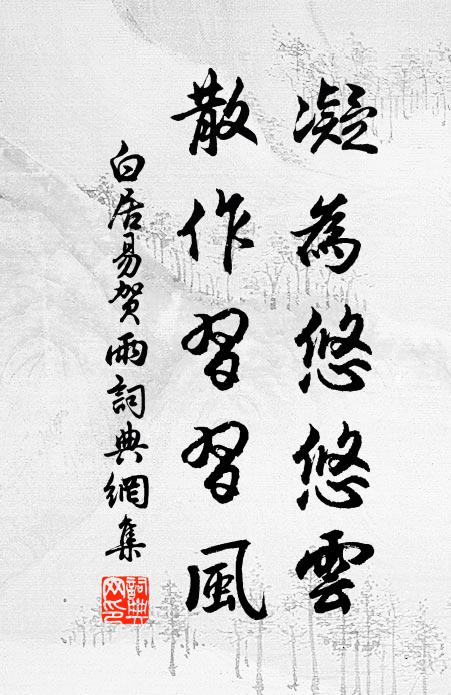 凝為悠悠雲
散作習習風
白居易賀雨詞典網集
詞典網印